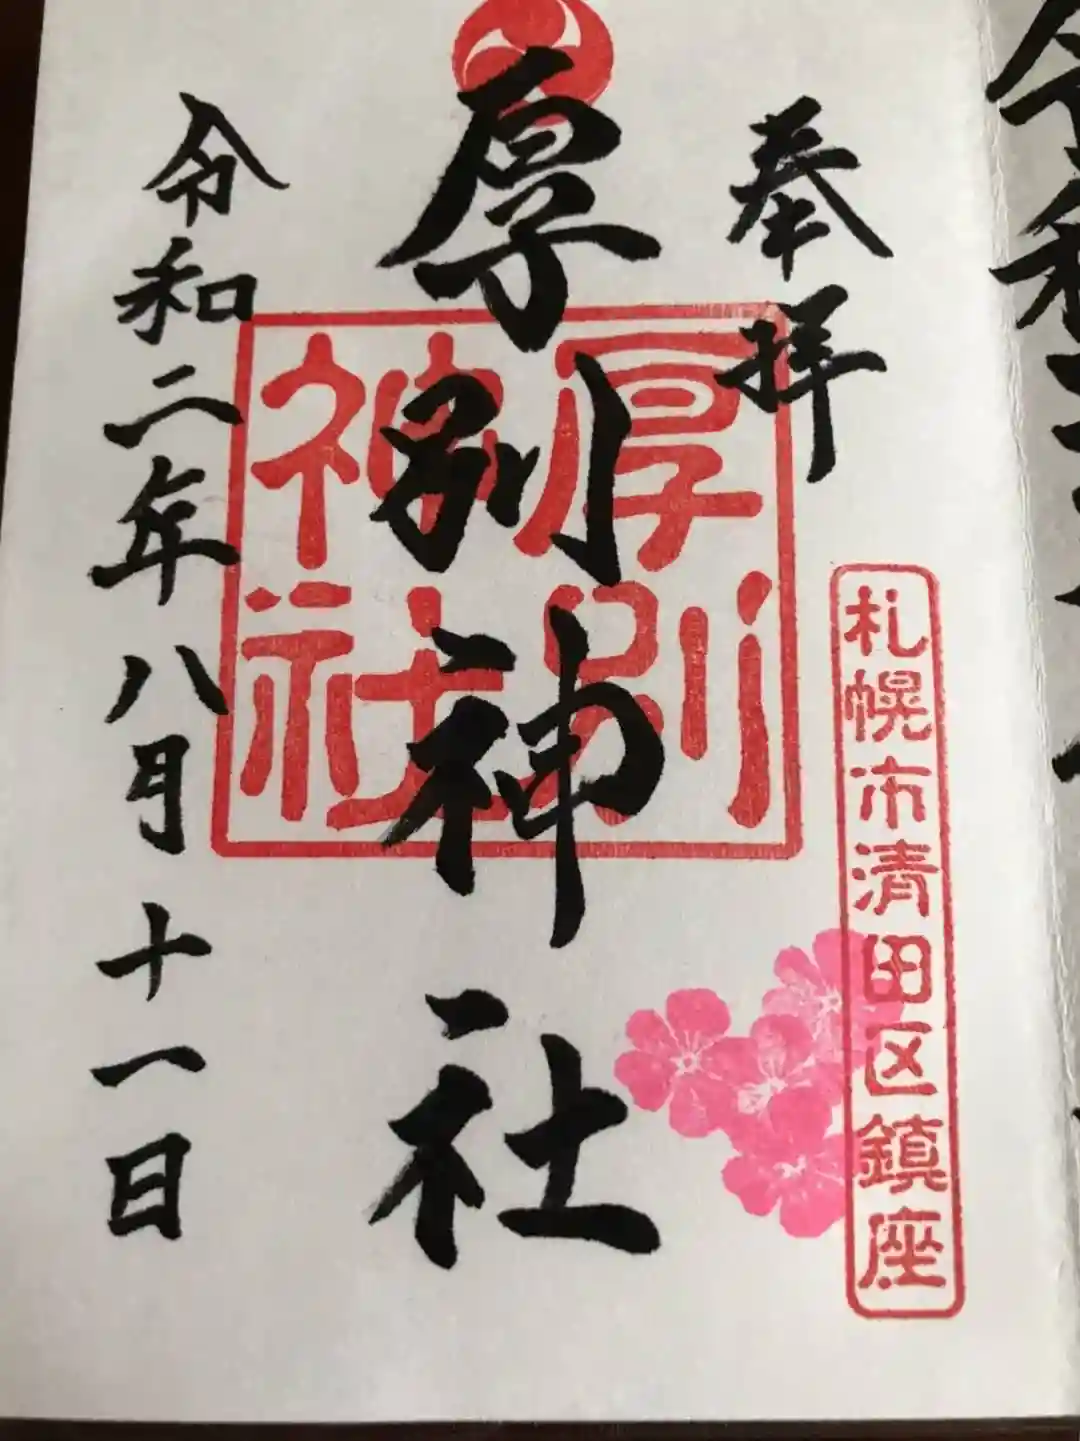 奉拝
札幌市清田区鎮座
厚別神社
厚別
神社
令和二年八月十一日
令和